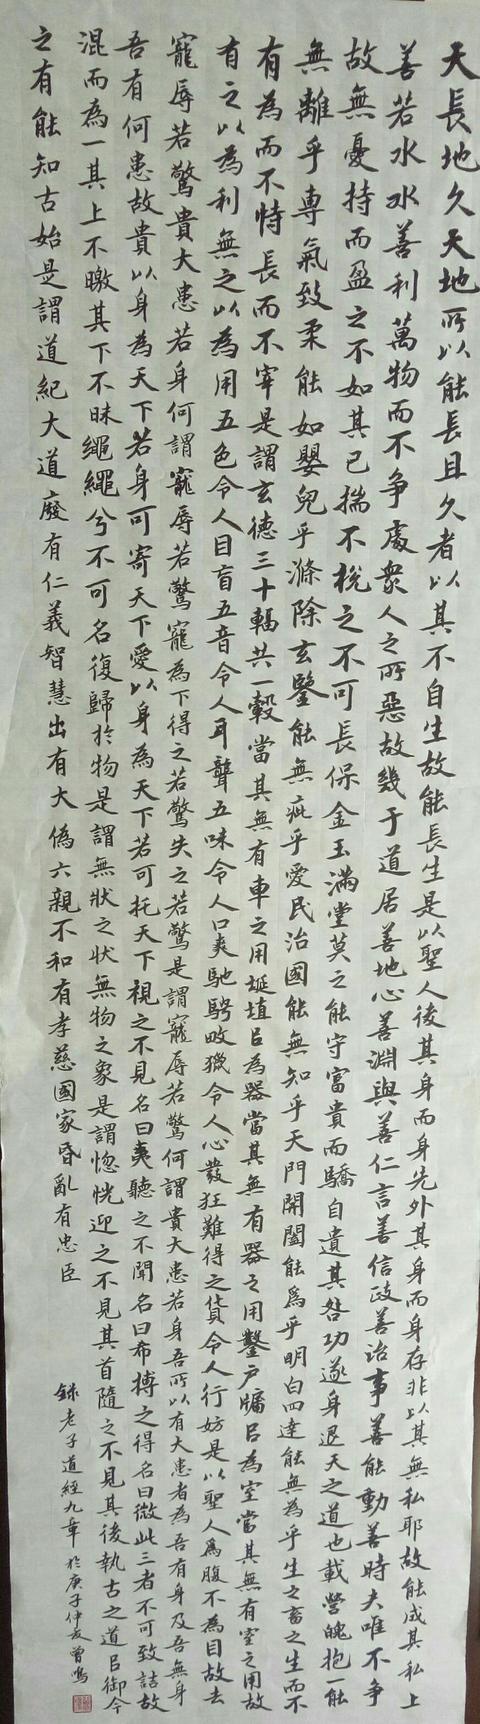 天長地久天地所以能長且久者以其不自生故能長生是以聖人後其身而身先外其身而身存非以其無私耶故能成其私上
善若水水善利萬物而不爭處衆人之所惡故幾于道居善地心善淵與善仁言善信政善治事善能動善時夫唯不爭
故無憂持而盈之不如其已揣不梲之不可長保金玉滿堂莫之能守富貴而驕自遺其咎功遂身退天之道也載營魄抱一能
無離乎專氣致柔能如嬰兒乎滌除玄鑒能無疵乎愛民治國能無知乎天門開闔能爲乎明白四達能無為乎生之畜之生而不
有為而不恃長而不宰是謂玄德三十輻共一轂當其無有車之用埏埴㠯為器當其無有器之用鑿户牖㠯為室當其無有室之用故
有之以為利無之以為用五色令人目盲五音令人耳聾五味令人口爽馳騁畋獵令人心發狂難得之貨令人行妨是以聖人爲腹不為目故去
寵辱若驚貴大患若身何謂寵辱若驚寵為下得之若驚失之若驚是謂寵辱若驚何謂貴大患若身吾所以有大患者為吾有身及吾無身
吾有何患故貴以身為天下若身可寄天下愛以身為天下若可托天下視之不見名曰夷聽之不聞名曰希搏之得名曰微此三者不可致詰故
混而為一其上不曒其下不昧繩繩兮不可名復歸於物是謂無狀之状無物之象是謂惚恍迎之不見其首隨之不見其後執古之道㠯御今
之有能知古始是謂道紀大道廢有仁義智慧出有大偽六親不和有孝慈國家昏亂有忠臣
録老子道經九章於庚子仲友曾鸣